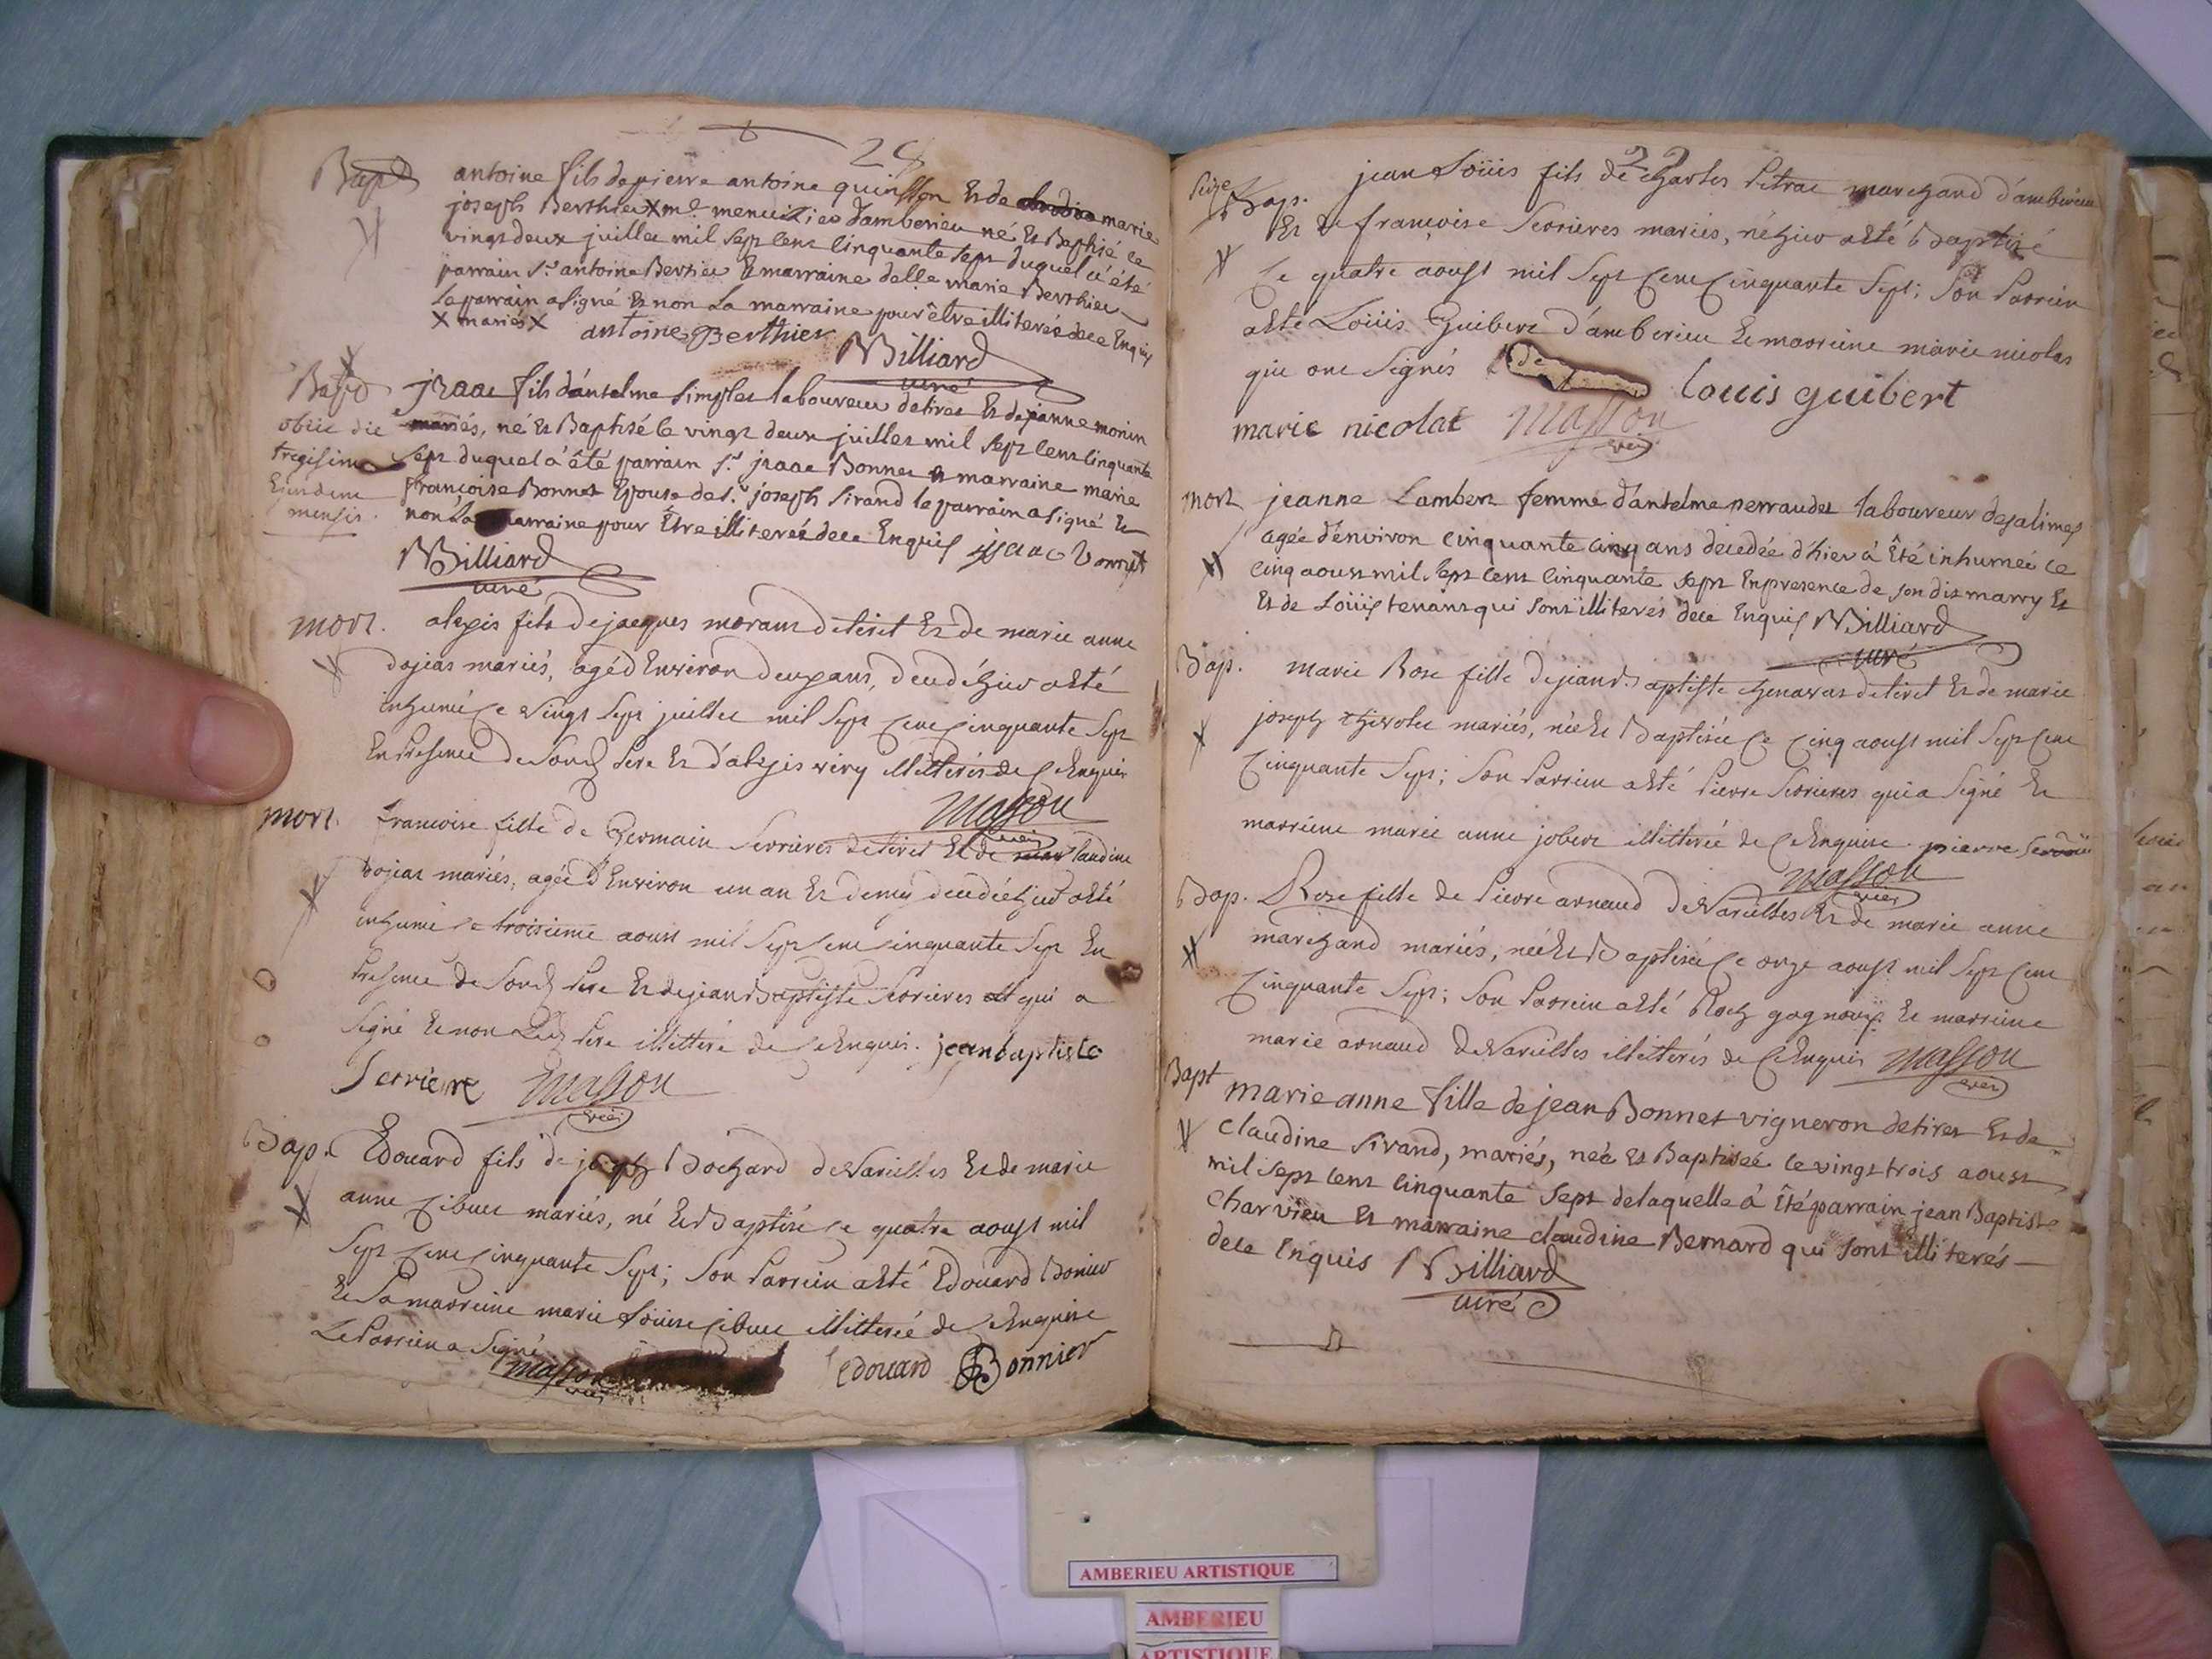 28
Bapt antoine fils de pierre antoine quinson Et de marie
joseph Berthier X me. menuisier d'amberieu né Et Baptisé le
vingt deux juillet mil sept cent cinquante sept duquel a été
parrain Sr antoine Bertier Et marraine delle marie Berthier
le parrain a signé Et non la marraine pour être illiterée de ce Enquis
X mariés X antoine Berthier
Billiard
curé
Bapt jsaac fils d'antelme simplet laboureur de tiret Et de janne monin
obiit die mariés, né Et Baptisé le vingt deux juillet mil sept cent cinquante
tregisima sept duquel a été parrain Sr jsaac Bonnet Et marraine marie
Eiusdem françoise Bonnet Epouse de Sr joseph Sirand le parrain a signé Et
mensis non la marraine pour Être illiterée de ce Enquis jsaac Bonnet
Billiard
curé
mort. alexis fils de jacques morand de tiret Et de marie anne
dojeas mariés, agé d'Environ deux ans, decedé hier a Eté
inhumé ce vingt sept juillet mil sept cent cinquante sept
En presence de son d. pere Et d'alexis very illitterés de ce Enquis
Masson
vic.
mort. francoise fille de Germain Serrieres de tiret Et de claudine
dojeas mariés, agée d'Environ un an Et demy decedée hier a Eté
inhumée ce troisieme aoust mil sept cent cinquante sept En
presence de son d. pere Et de jean Baptiste Serrieres qui a
signé Et non Led. pere illitteré de ce Enquis. jean baptiste
Serriere Masson
vic.
Bap. Edouard fils de joseph Bochard de Varielles Et de marie
anne Cibuet mariés, né Et Baptisé ce quatre aoust mil
sept cent cinquante sept; son Parrein a Eté Edouard Bonier
Et Sa marreine marie Loüise Cibuet illitterée de ce Enquise
Le Parrein a signé
Masson Edouard Bonnier
vic.
29
Bap. jean Loüis fils de Charles Petrac marchand d'amberieu
Et de françoise Serrieres mariés, né hier a Eté Baptisé
ce quatre aoust mil sept cent cinquante sept; son Parrein
a Eté Loüis Guibert d'amberieu Et marreine marie nicolas
qui ont signés de Louis guibert
marie nicolat Masson
vic.
mort jeanne Lambert femme d'antelme perraudet laboureur des alimes
agée d'environ cinquante cinq ans decedée d'hier a Été inhumée ce
cinq aoust mil sept cent cinquante sept En presence de son dit marry Et
Et de Loüis tenant qui sont illiterés de ce Enquis Billiard
curé
Bap. marie Rose fille de jean Baptiste chenavas de tiret Et de marie
joseph chevolet mariés, née Et Baptisée ce cinq aoust mil sept cent
cinquante sept; son Parrein a Eté Pierre Serrieres qui a signé Et
marreine marie anne jobert illitterée de ce Enquise. pierre
Masson
vic.
Bap. Rose fille de Pierre arnaud de Varielles Et de marie anne
marchand mariés, née Et Baptisée ce onze aoust mil sept cent
cinquante sept; son Parrein a Eté Roch gagnoux Et marreine
marie arnaud de Varielles illitterés de ce Enquis Masson
vic.
Bapt marie anne fille de jean Bonnet vigneron de tiret Et de
claudine Sirand, mariés, née Et Baptisée le vingt trois aoust
mil sept cent cinquante sept de laquelle a Été parrain jean Baptiste
Charvieu Et marraine claudine Bernard qui sont illiterés
de ce Enquis Billiard
curé
AMBERIEU ARTISTIQUE
AMBERIEU
ARTISTIQUE